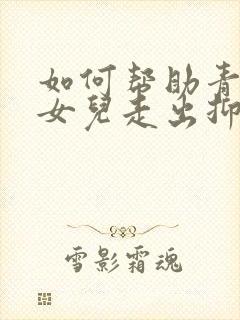 如何帮助青
女兒走出抑
雪影霜魂